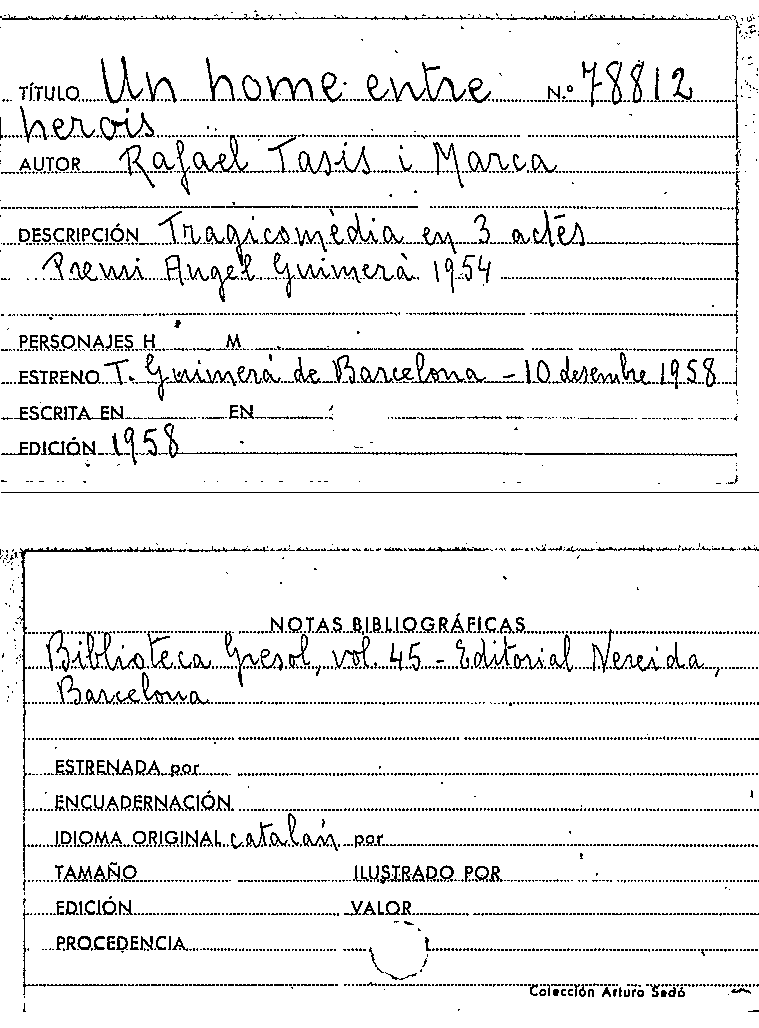 TÍTULO Un home entre N.º 78812
herois
AUTOR Rafael Tasis i Marca
DESCRIPCIÓN Tragicomèdia en 3 actes
Premi Angel Guimerà 1954
PERSONAJES H M
ESTRENO T. Guimerá de Barcelona - 10 desembre 1958
ESCRITA EN EN
EDICIÓN 1958
NOTAS BIBLIOGRÁFICAS
Biblioteca Gresol, vol. 45 - Editorial Nereida,
Barcelona
ESTRENADA por
ENCUADERNACIÓN
IDIOMA ORIGINAL catalán por
TAMAÑO ILUSTRADO POR
EDICIÓN VALOR
PROCEDENCIA
Colección Arturo Sedó